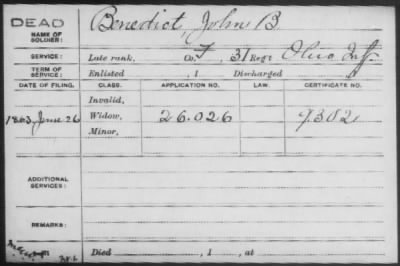 DEAD Benedict, John B
NAME OF
SOLDIER:
SERVICE: Late rank, Co. F, 31 Reg't Ohio Inf.
TERM OF
SERVICE: Enlisted , 1 Discharged
DATE OF FILING. CLASS. APPLICATION NO. LAW. CERTIFICATE NO.
Invalid,
1863, June 26 Widow, 26.026 9302
Minor,
ADDITIONAL
SERVICES:
REMARKS:
Died , 1 , at